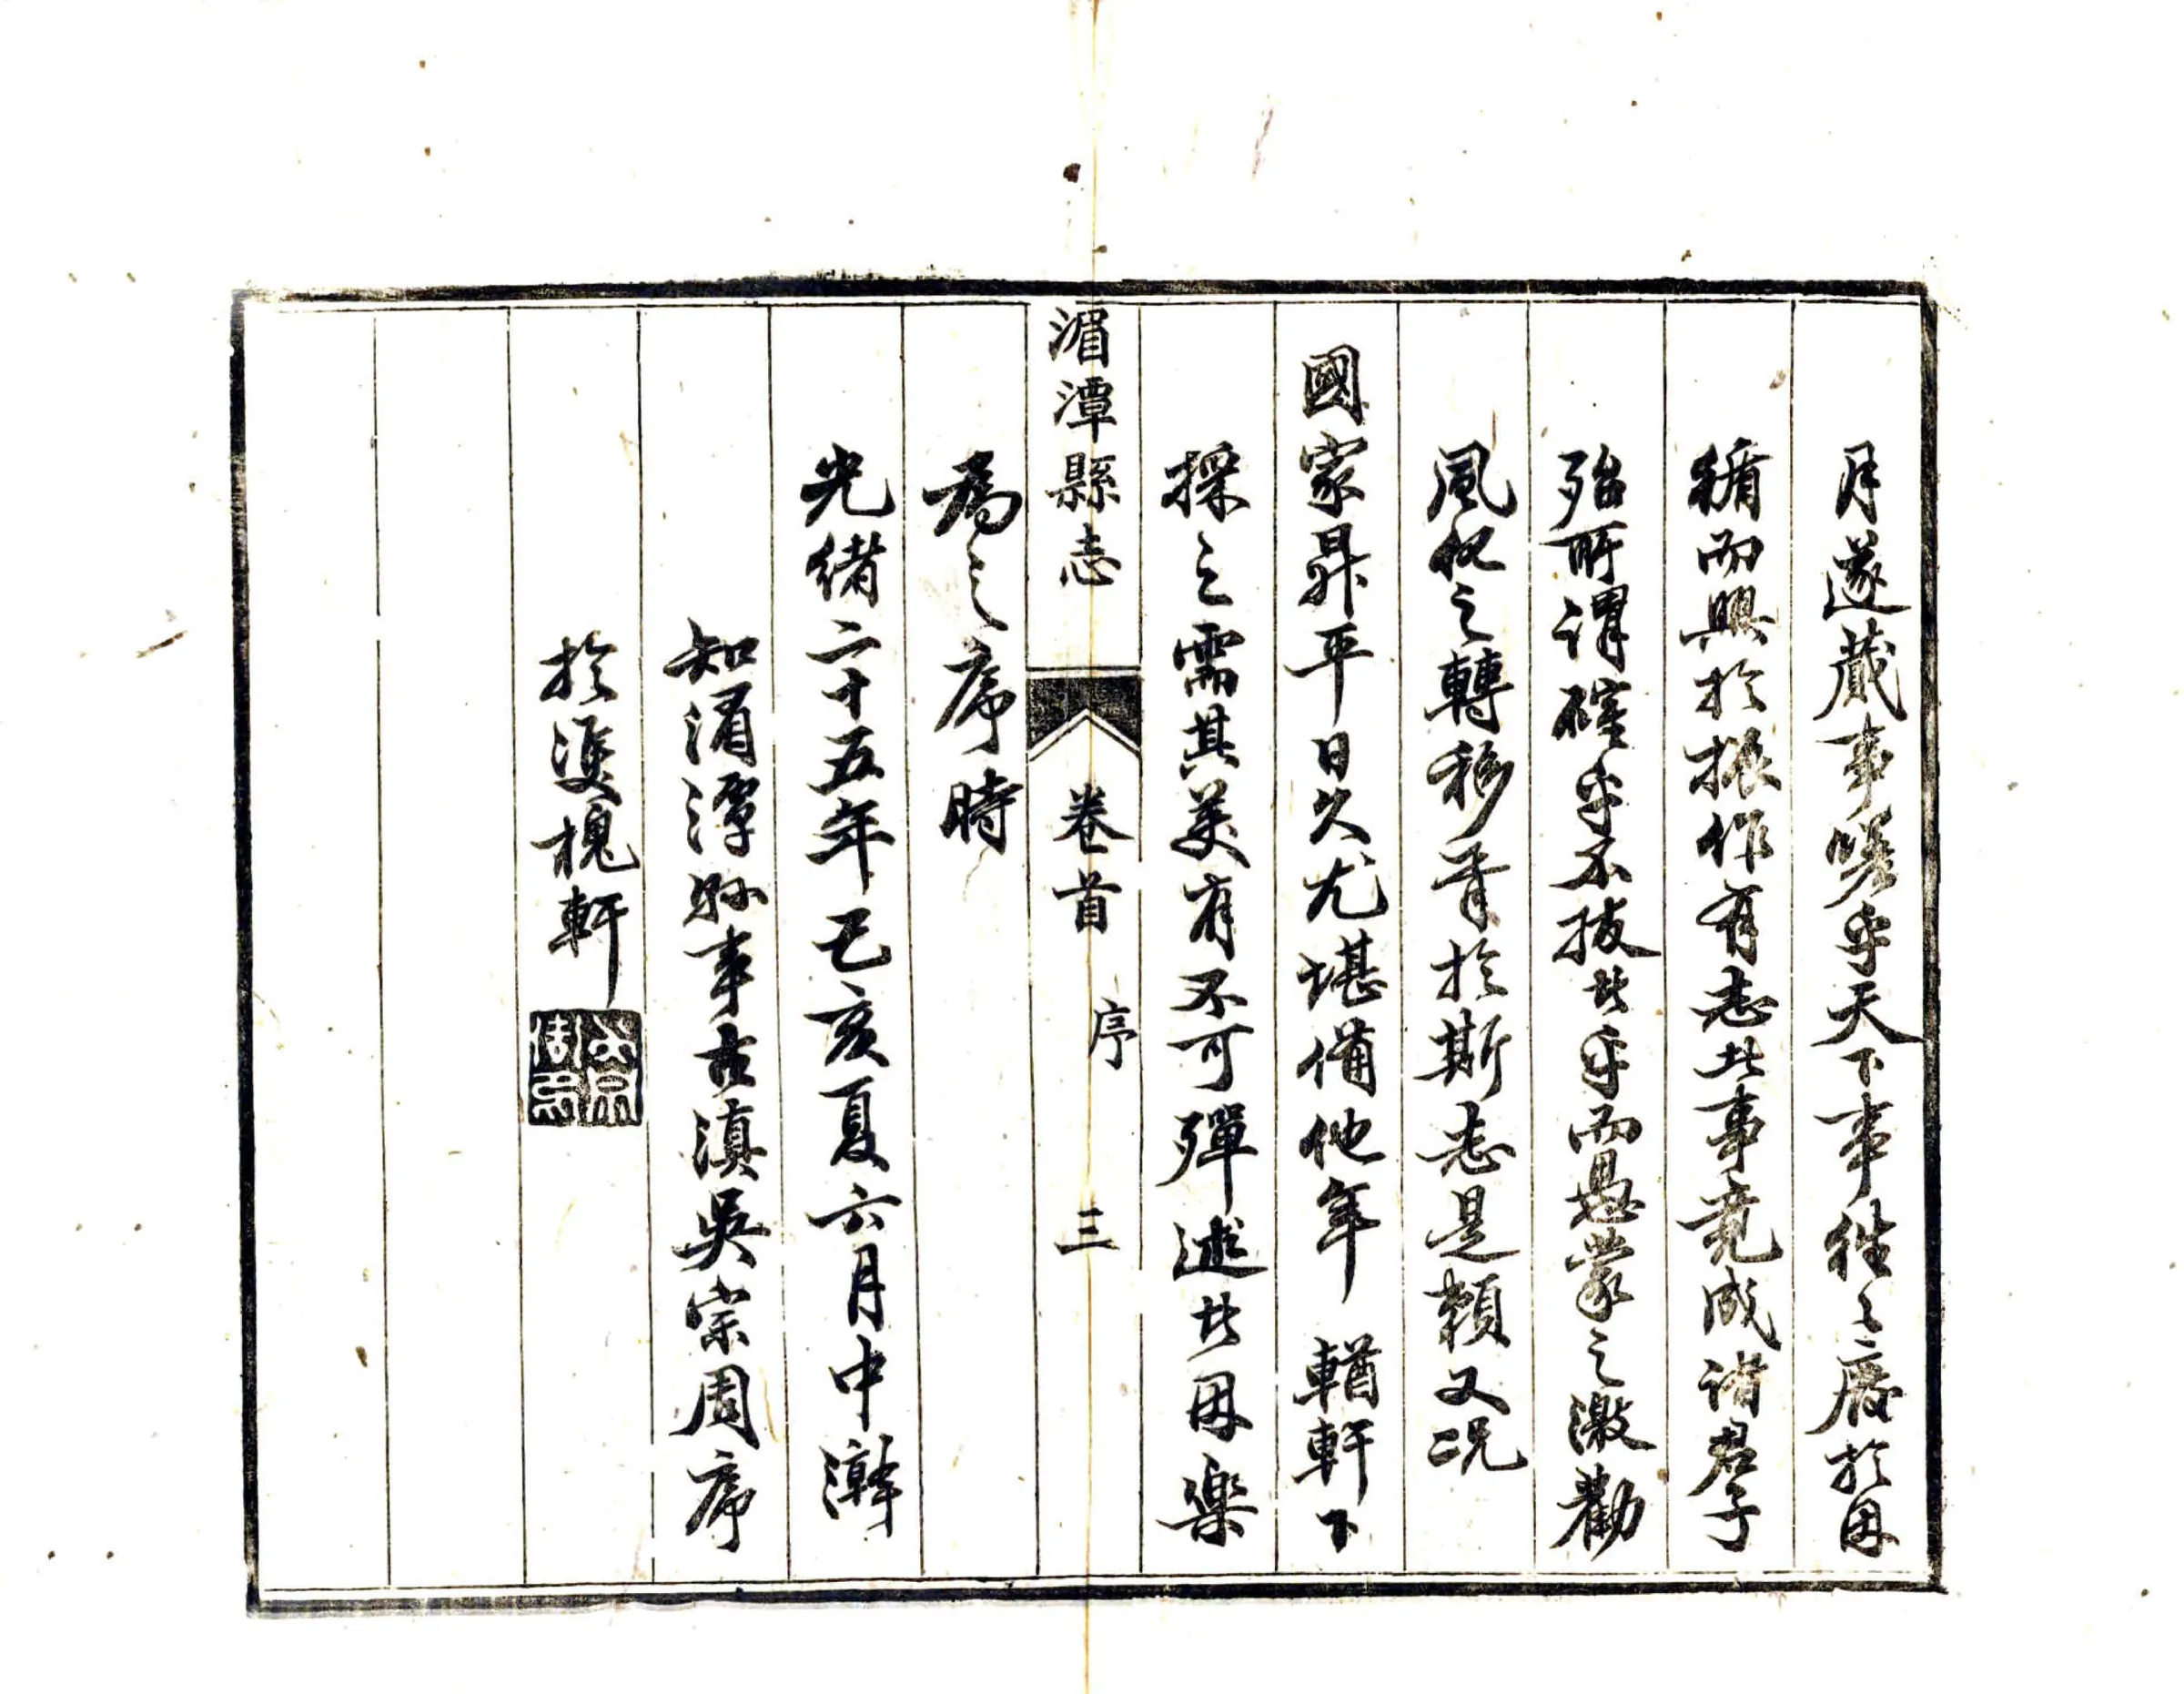 月遂蕆事嗟乎天下事往々廢於因
循而興於振作有志此事竟成諸君子
殆所謂確乎不拔者乎而愚蒙之激勸
風化之轉移胥於斯志是賴又况
國家昇平日久尤堪備他年輶軒下
採之需其美有不可殫述者因樂
湄潭縣志 卷首 序 三
為之序時
光緒二十五年己亥夏六月中澣
知湄潭縣事古滇吳宗周序
於雙槐軒